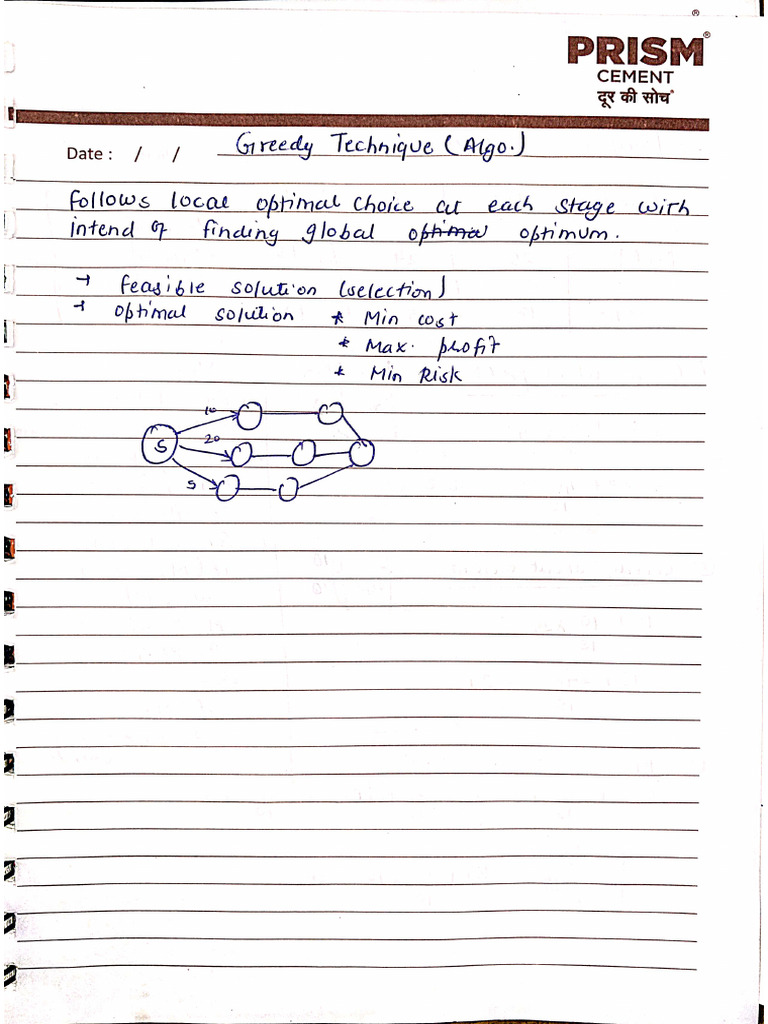 PRISM®
CEMENT
दूर की सोच®
Date : / / Greedy Technique (Algo.)
follows local optimal choice at each stage with
intend of finding global optima optimum.
→ feasible solution (selection)
→ optimal solution * Min cost
* Max. profit
* Min Risk
10
S 20
5